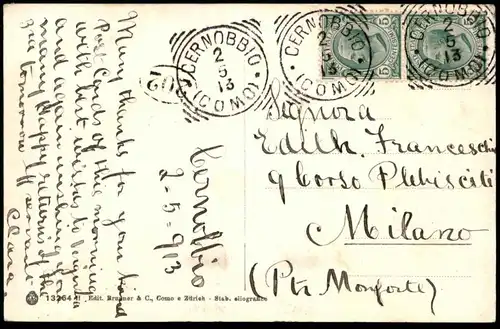 Many thanks for your kind
Post Cards of this morning
with best wishes to Virginia
and again wishing you
many Happy returns of the
for tomorrow aff
Clara.
Cernobbio
2-5-913
CERNOBBIO
2
5
13
(COMO)
CERNOBBIO
2
5
13
(COMO)
CERNOBBIO
2
5
13
(COMO)
Signora
Edith Franceschi
9 Corso Plebisciti
Milano
(Pta Monforte)
13264 Edit. Brunner & C., Como e Zürich - Stab. eliografico